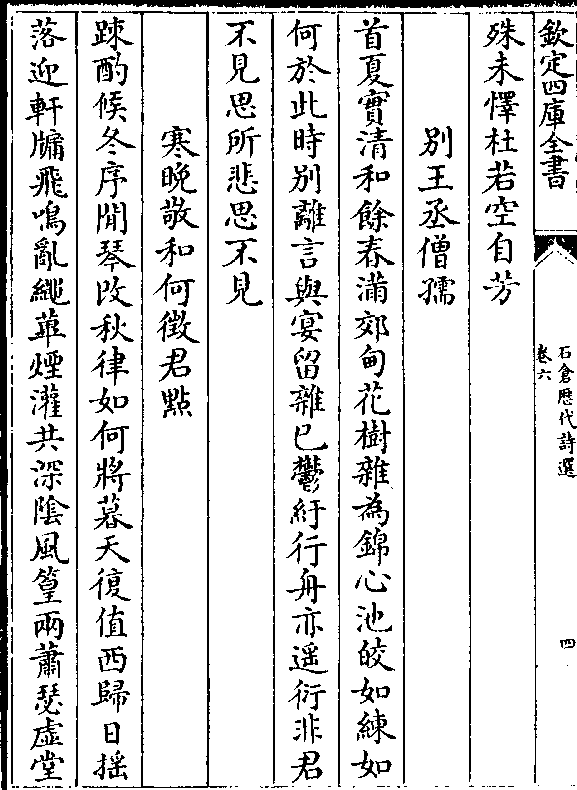 欽定四庫全書
石倉歷代詩選
卷六
四
殊未懌杜若空自芳
別王丞僧孺
首夏實清和餘春滿郊甸花樹雜為錦心池皎如練如
何於此時別離言與宴留雜已鬱紆行舟亦遥衍非君
不見思所悲思不見
寒晚敬和何徵君點
踈酌候冬序閒琴改秋律如何將暮天復值西歸日揺
落迎軒牗飛鳴亂繩蓽煙灌共深陰風篁兩蕭瑟虛堂